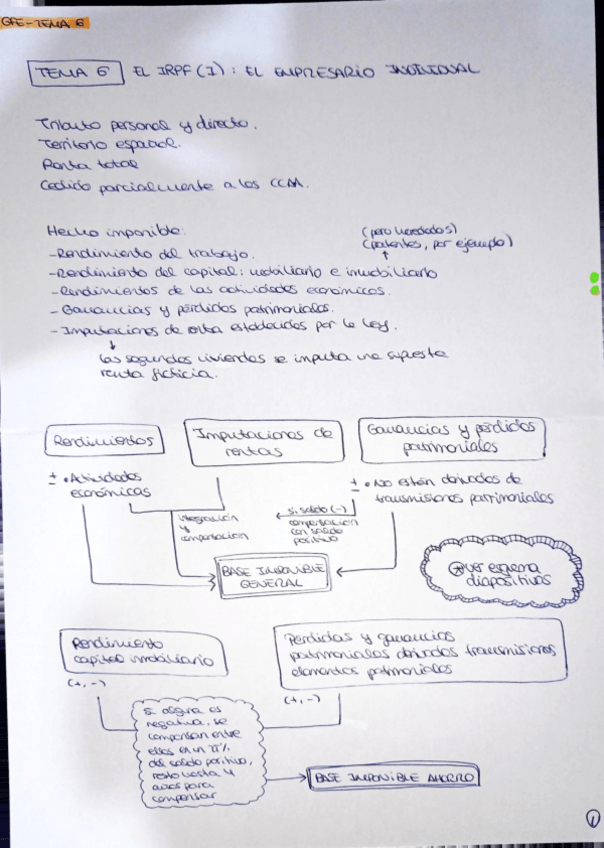 GFE - TEMA 6
TEMA 6 EL IRPF (I): EL EMPRESARIO INDIVIDUAL
Tributo personal y directo.
Territorio español.
Renta total
Cedido parcialmente a las CCAA.
Hecho imponible: (pero heredados)
(patentes, por ejemplo)
- Rendimiento del trabajo.
- Rendimiento del capital: mobiliario e inmobiliario
- Rendimientos de las actividades económicas.
- Ganancias y pérdidas patrimoniales.
- Imputaciones de renta establecidas por la ley.
las segundas viviendas se imputa una supuesta
renta ficticia.
Rendimientos
Imputaciones de
rentas
Ganancias y pérdidas
patrimoniales
± • Actividades
económicas
± • No están derivadas de
transmisiones patrimoniales
integración
y
compensación
si saldo (-)
compensación
con saldo
positivo
BASE IMPONIBLE
GENERAL
ver esquema
diapositivas
Rendimiento
capital inmobiliario
(+, -)
Pérdidas y ganancias
patrimoniales derivadas transmisiones
elementos patrimoniales
(+, -)
si alguna es
negativa, se
compensan entre
ellas en un
del saldo positivo,
resto hasta 4
años para
compensar
BASE IMPONIBLE AHORRO
1